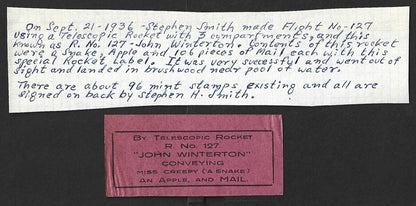 On Sept. 21-1936 - Stephen Smith made Flight No-127
using a Telescopic Rocket with 3 compartments, and this
known as R. No. 127 - John Winterton. Contents of this rocket
were a Snake, Apple and 106 pieces of Mail each with this
special Rocket Label. It was very successful and went out of
sight and landed in brushwood near pool of water.
There are about 96 mint stamps existing and all are
signed on back by Stephen H. Smith.
BY TELESCOPIC ROCKET
R. No. 127
"JOHN WINTERTON"
CONVEYING
MISS CREEPY ('A SNAKE)
AN APPLE, AND MAIL.